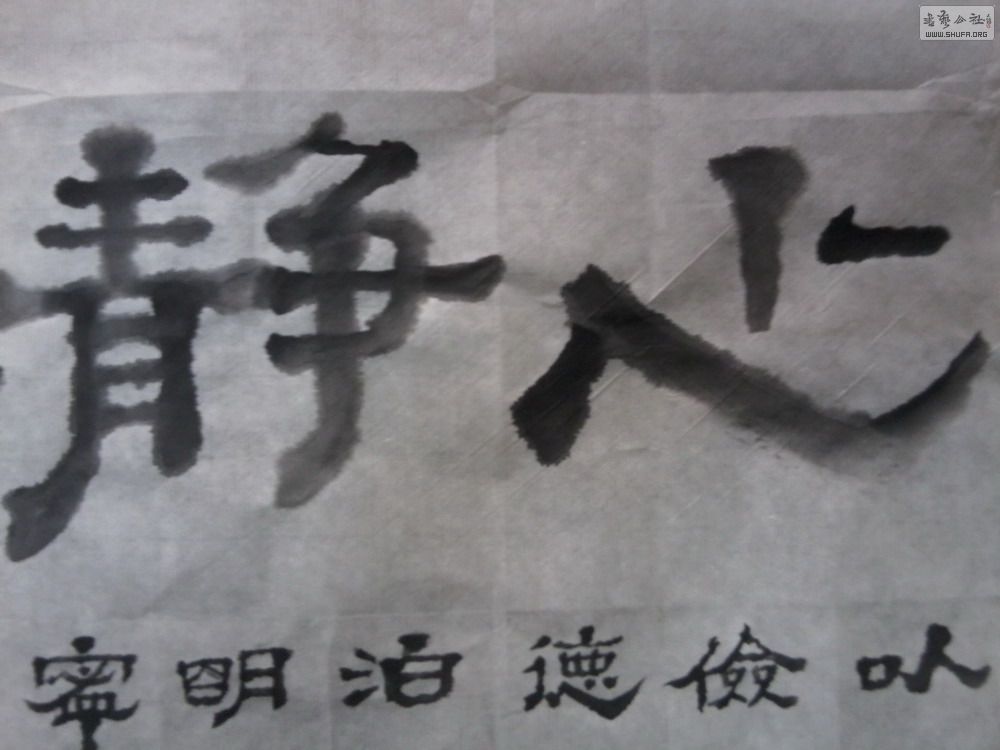 心靜
以儉德泊明寧
书艺公社
WWW.SHUFA.ORG